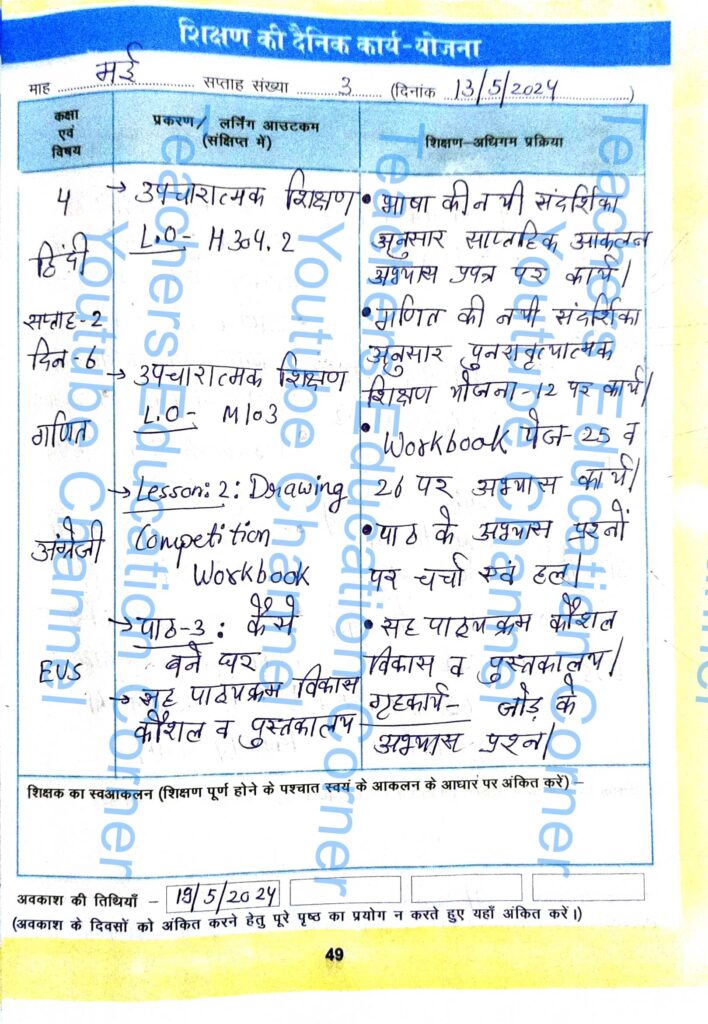 शिक्षण की दैनिक कार्य-योजना
माह मई सप्ताह संख्या 3 (दिनांक 13/5/2024)
कक्षा एवं विषय
प्रकरण/ लर्निंग आउटकम (संक्षिप्त में)
शिक्षण–अधिगम प्रक्रिया
4
हिंदी
सप्ताह-2
दिन-6
गणित
अंग्रेजी
EVS
→ उपचारात्मक शिक्षण
L.O- H304.2
→ उपचारात्मक शिक्षण
L.O- M103
→ Lesson: 2: Drawing
Competition
Workbook
→ पाठ-3: कैसे
बने घर
→ सह पाठ्यक्रम विकास
कौशल व पुस्तकालय
• भाषा की नयी संदर्शिका
अनुसार साप्ताहिक आकलन
अभ्यास प्रपत्र पर कार्य।
• गणित की नयी संदर्शिका
अनुसार पुनरावृत्यात्मक
शिक्षण योजना-12 पर कार्य।
• Workbook पेज-25 व
26 पर अभ्यास कार्य।
• पाठ के अभ्यास प्रश्नों
पर चर्चा एवं हल।
• सह पाठ्यक्रम कौशल
विकास व पुस्तकालय।
गृहकार्य- जोड़ के
अभ्यास प्रश्न।
शिक्षक का स्वआकलन (शिक्षण पूर्ण होने के पश्चात स्वयं के आकलन के आधार पर अंकित करें) –
अवकाश की तिथियाँ – 19/5/2024
(अवकाश के दिवसों को अंकित करने हेतु पूरे पृष्ठ का प्रयोग न करते हुए यहाँ अंकित करें।)
49
Teachers Education Corner
Youtube Channel
Teachers Education Corner
Youtube Channel
Teachers Education Corner